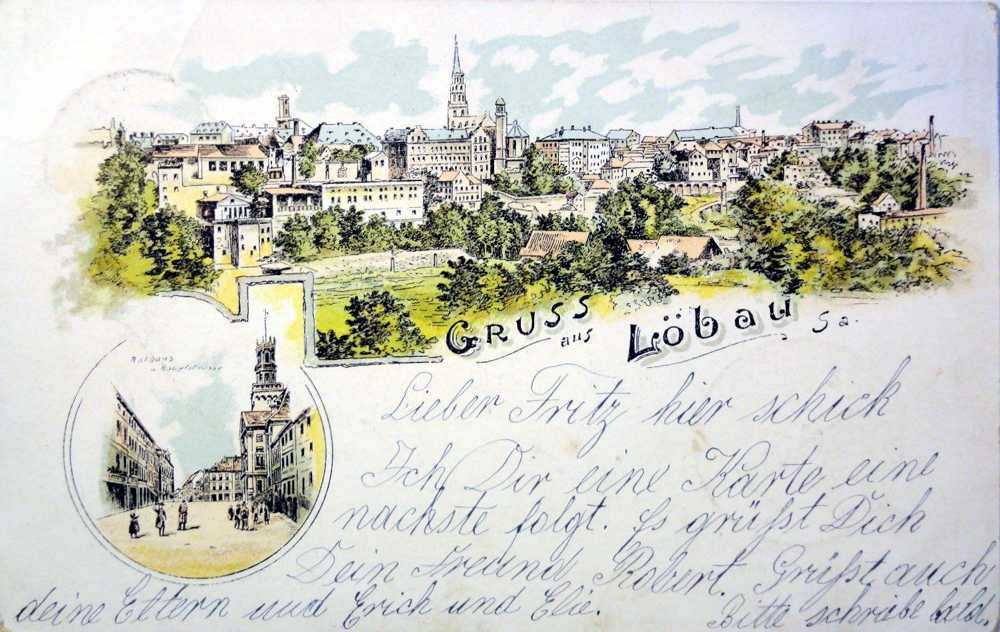 GRUSS aus Löbau Sa.
Rathaus
Lieber Fritz hier schick
Ich Dir eine Karte eine
nachste folgt. Es grüßt Dich
Dein Freund Robert. Grüßt auch
deine Eltern und Erich und Elie.
Bitte schreibe bald.